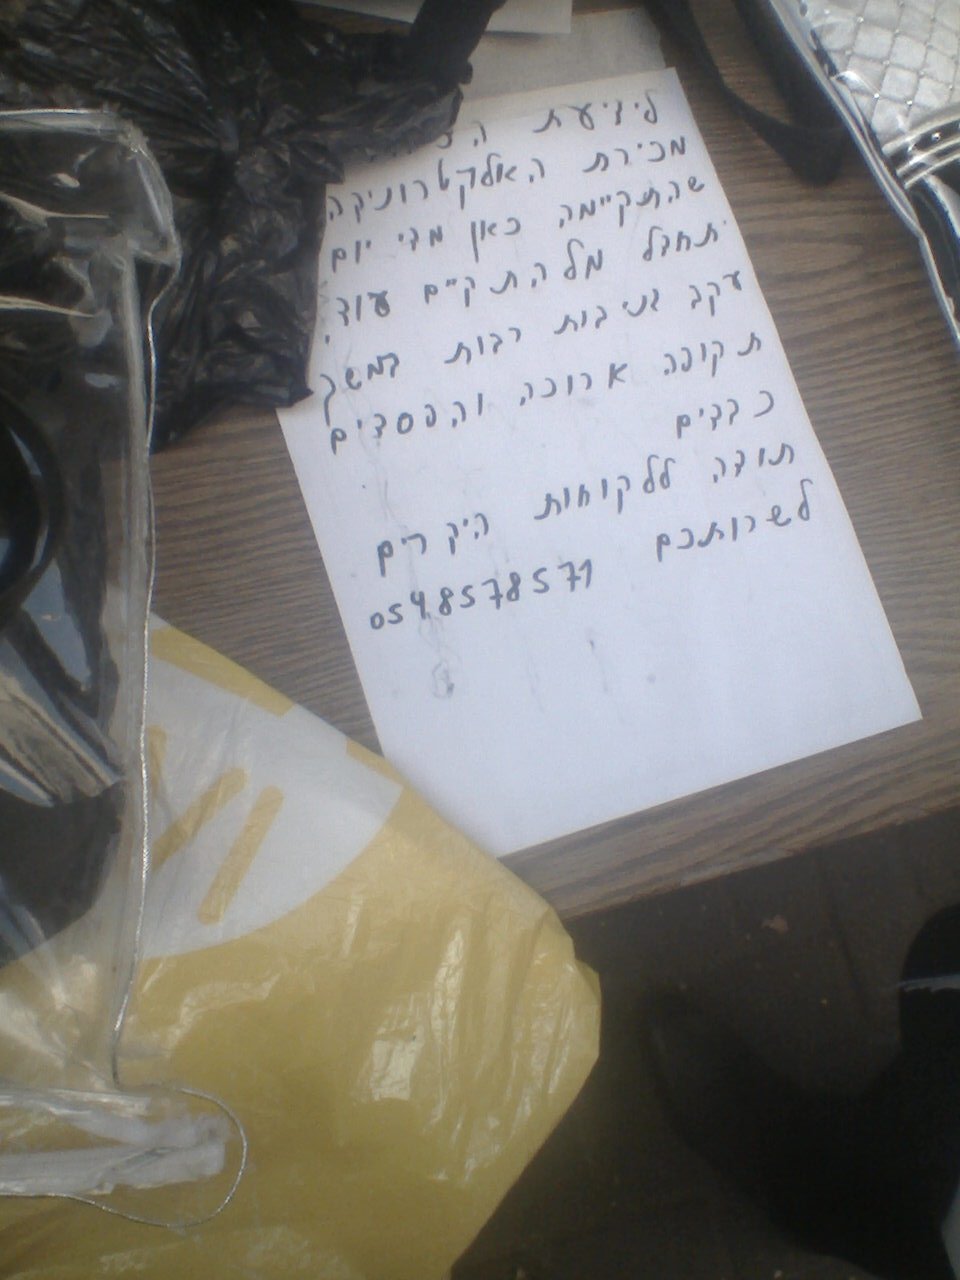 לידיעת
מכירת האלקטרוניקה
שהתקיימה כאן מדי יום
תחדל מלהתקיים עוד
עקב גניבות רבות במשך
תקופה ארוכה והפסדים
כבדים
תודה ללקוחות היקרים
לשרותכם 0548578571